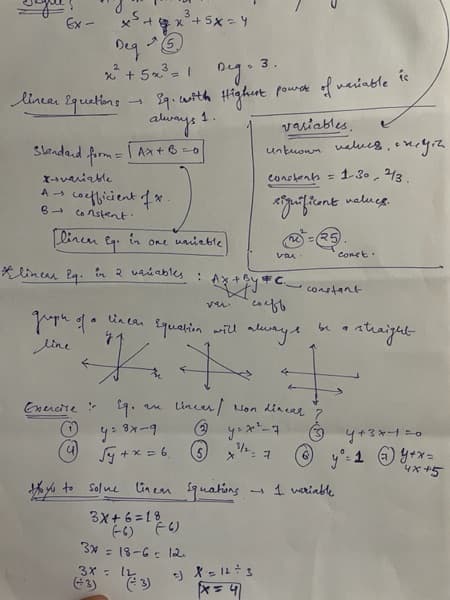 Ex - x⁵ + x³ + 5x = 4
Deg → 5
x² + 5x³ = 1 Deg = 3.
linear Equations → Eq. with Highest power of variable is
always 1.
Standard form = Ax + B = 0
x → variable
A → coefficient of x.
B → constent.
linear Eq. in one variable
variables.
unknown values,
constants = 1.30, 2/3.
significent values.
x² = 25
var. const.
* linear Eq. in 2 variables : Ax + By = C constant
var. coeff
graph of a linear Equation will always be a straight
line
y
x
Exercise :- Eq. are linear / Non linear ?
① y = 8x - 9 ② y = x² - 7 ③ y + 3x - 1 = 0
④ √y + x = 6. ⑤ x^3/2 = 7 ⑥ y⁰ = 1 ⑦ y + x =
4x + 5
to solve linear Equations → 1 variable
3x + 6 = 18
(-6) (-6)
3x = 18 - 6 = 12
3x = 12 ⇒ x = 12 ÷ 3
(÷3) (÷3) x = 4